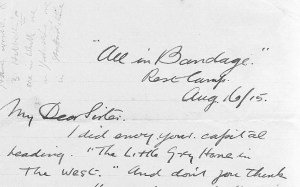 "All in Bandage."
Rest Camp.
Aug 16/15.
My Dear Sister.
I did envy your capital
heading. "The Little Grey Home in
The West." And don't you think